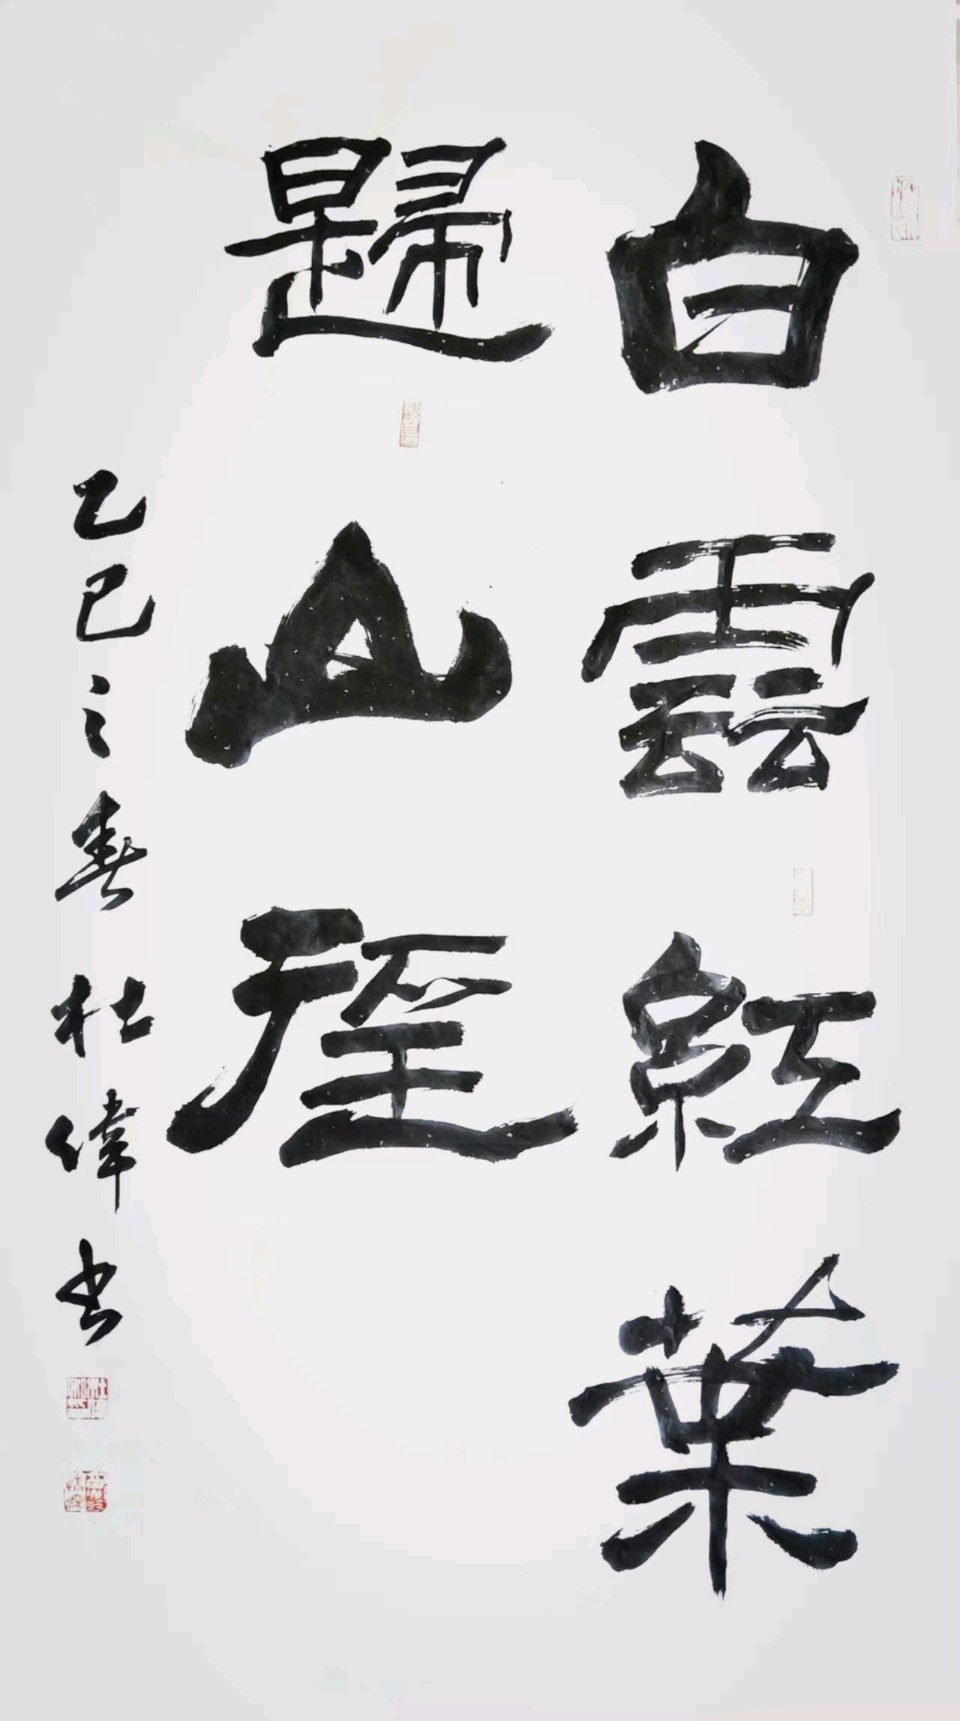 白雲紅葉
歸山徑
乙巳之春 杜偉書